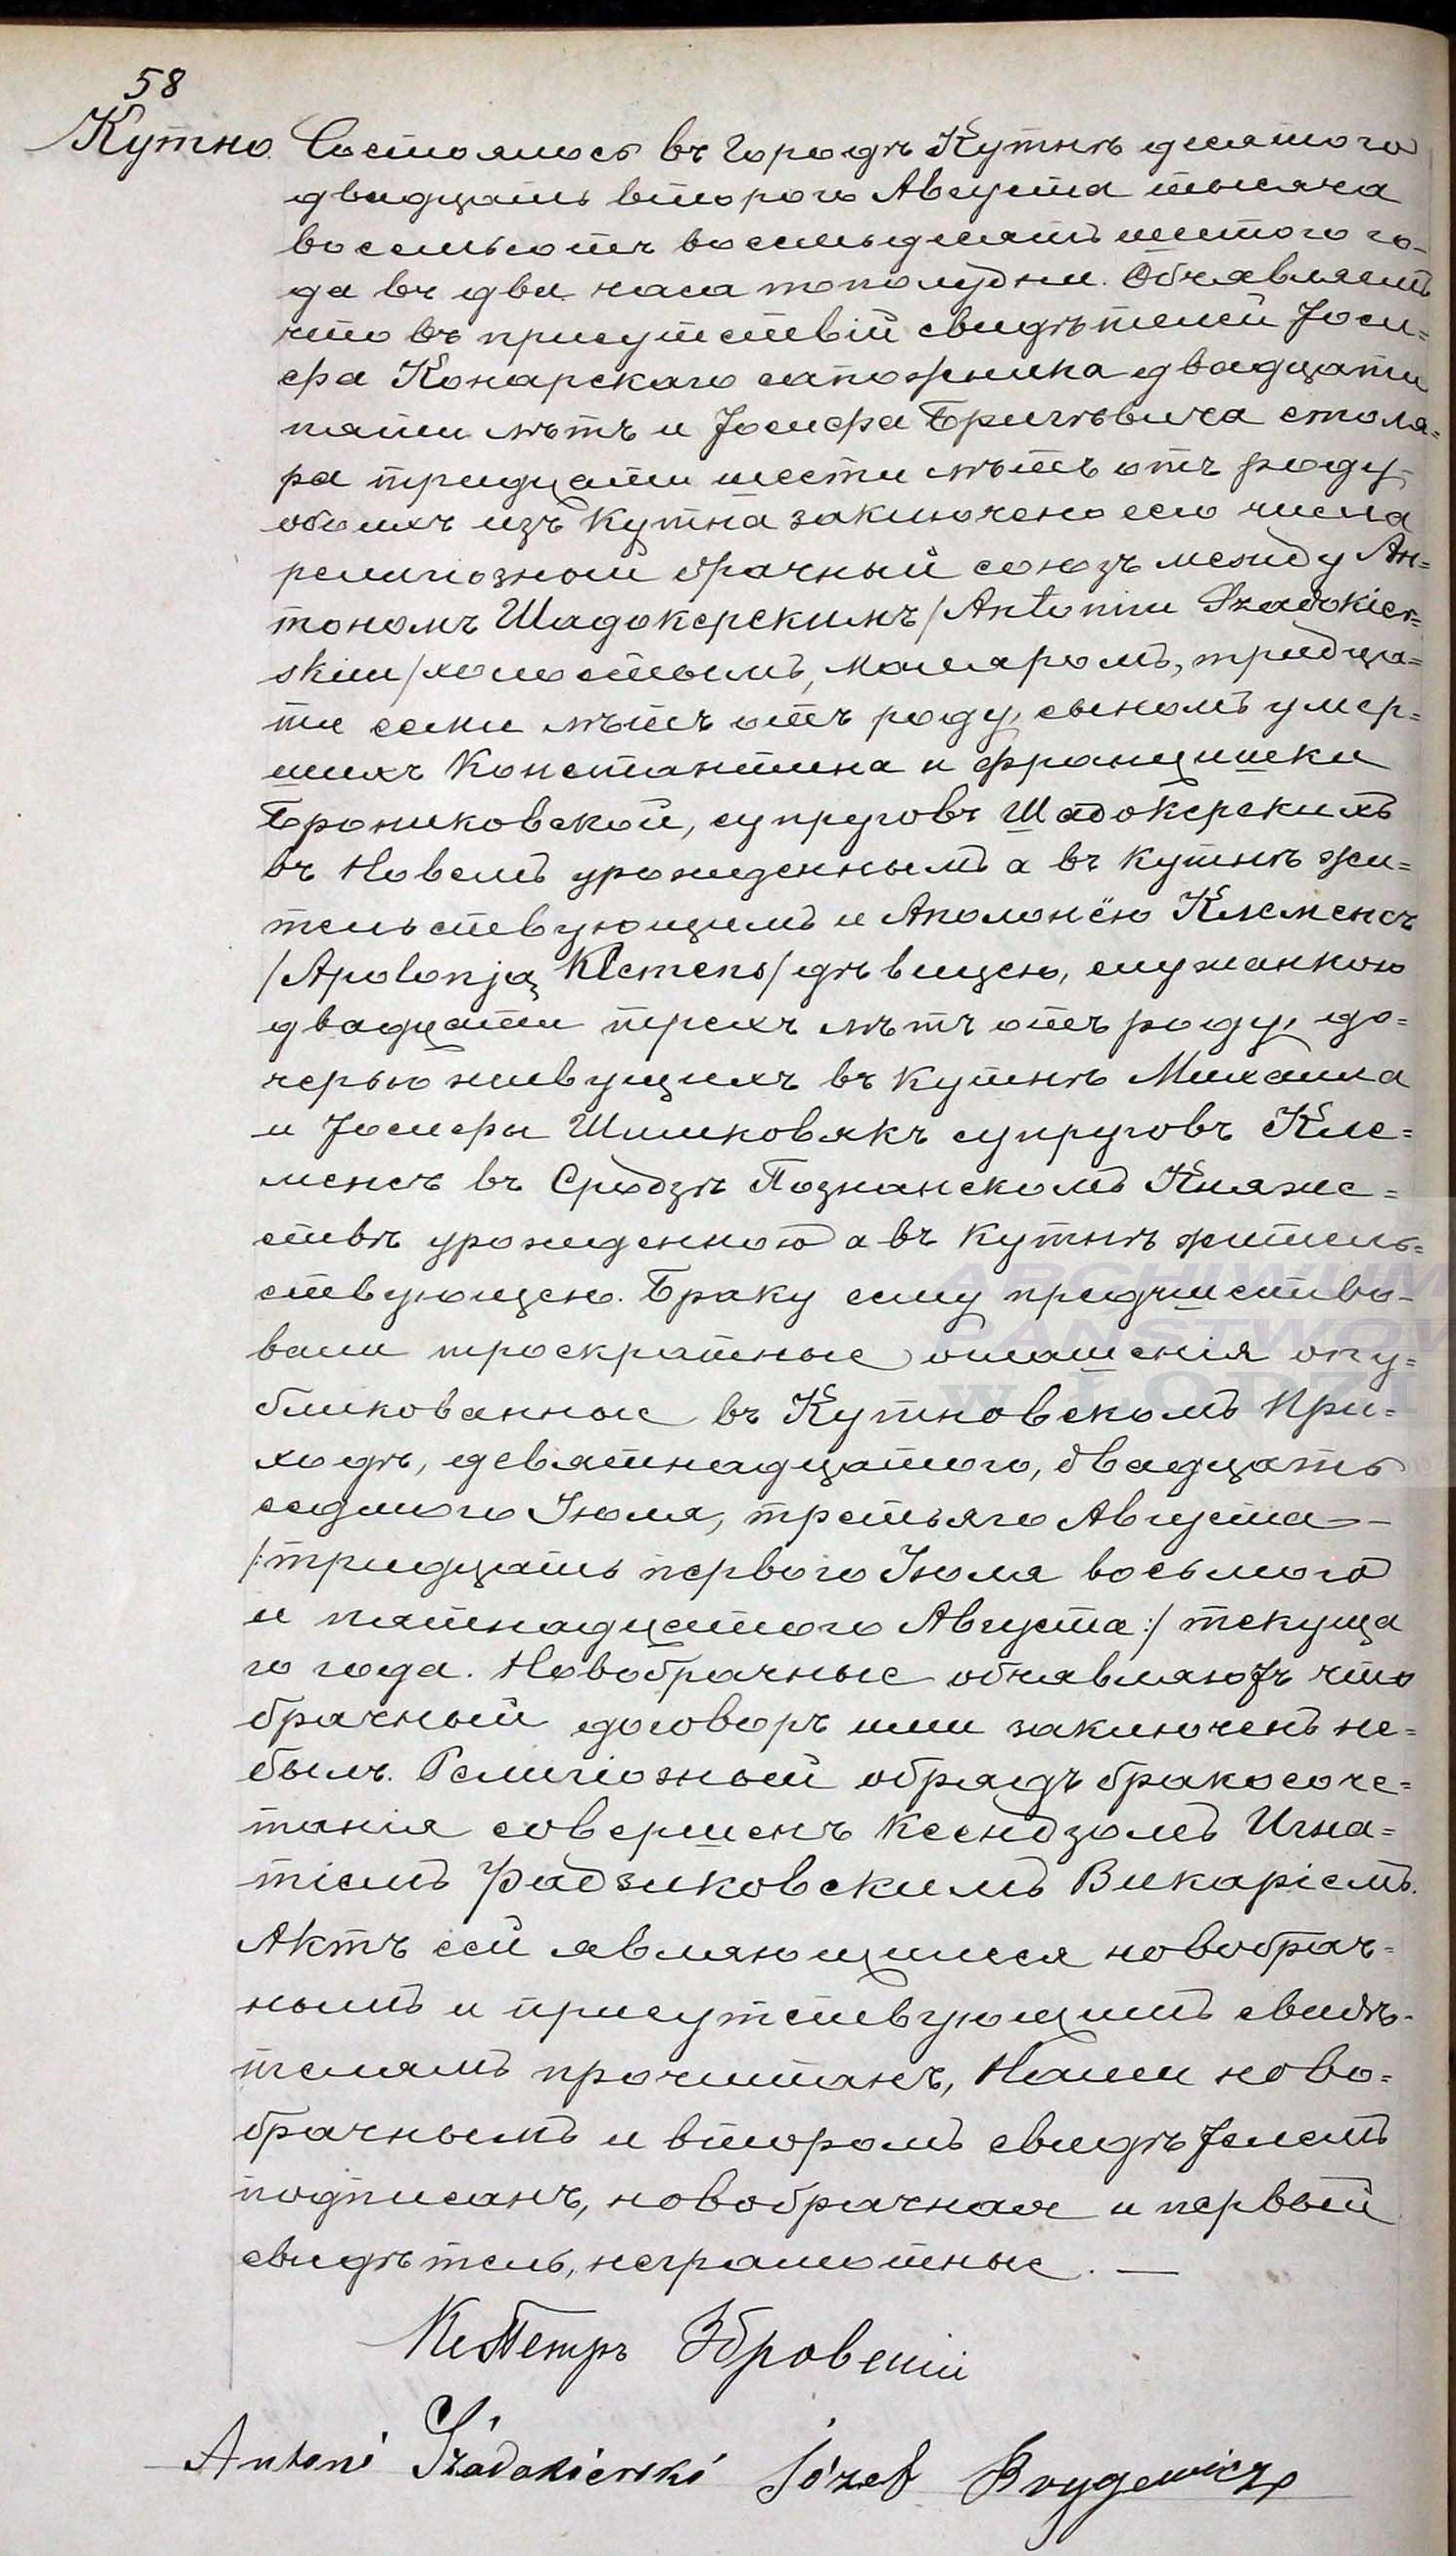 58
Кутно. Состоялось въ Городѣ Кутнѣ десятого
двадцать второго Августа тысяча
восемьсотъ восемьдесятъ шестого го-
да въ два часа пополудни. Объявляемъ
что въ присутствіи свидѣтелей Іоси=
фа Конарскаго сапожника двадцати
пяти лѣтъ и Іосифа Бригѣвича столя=
ра тридцати шести лѣтъ отъ роду,
обоихъ изъ Кутна заключено сего числа
религіозный брачный союзъ между Ан=
тономъ Шадокерскимъ /Antonim Szadokier=
skim/ холостымъ, маляромъ, тридца=
ти семи лѣтъ отъ роду, сыномъ умер=
шихъ Константина и Францишки
Брониковской, супруговъ Шадокерскихъ
въ Новемъ урожденнымъ а въ Кутнѣ жи=
тельствующимъ и Аполонёю Клеменсъ
/Apolonją Klemens/ дѣвицею, служанкою
двадцати трехъ лѣтъ отъ роду, до=
черью живущихъ въ Кутнѣ Михаила
и Іосифы Шимковякъ супруговъ Кле=
менсъ въ Сродзѣ Познанскомъ Княже=
ствѣ урожденною а въ Кутнѣ житель=
ствующею. Браку сему предшество-
вали троекратные оглашенія опу=
бликованные въ Кутновскомъ При=
ходѣ, девятнадцатого, двадцать
седмого Іюля, третьяго Августа —
/:тридцать первого Іюля восьмого
и пятнадцатого Августа:/ текуща
го года. Новобрачные объявляютъ что
брачный договоръ ими заключенъ не=
былъ. Религіозный обрядъ бракосоче=
танія совершенъ Ксендзомъ Игна=
тіемъ Радзиковскимъ Викаріемъ.
Актъ сей являющимся новобрач=
нымъ и присутствующимъ свидѣ-
телямъ прочитанъ, Нами ново=
брачнымъ и вторымъ свидѣтелемъ
подписанъ, новобрачная и первый
свидѣтель, неграмотные. —
Кс Петръ
Antoni Szadokierski Józef Brygewicz
ARCHIWUM
PAŃSTWOW
w ŁODZI